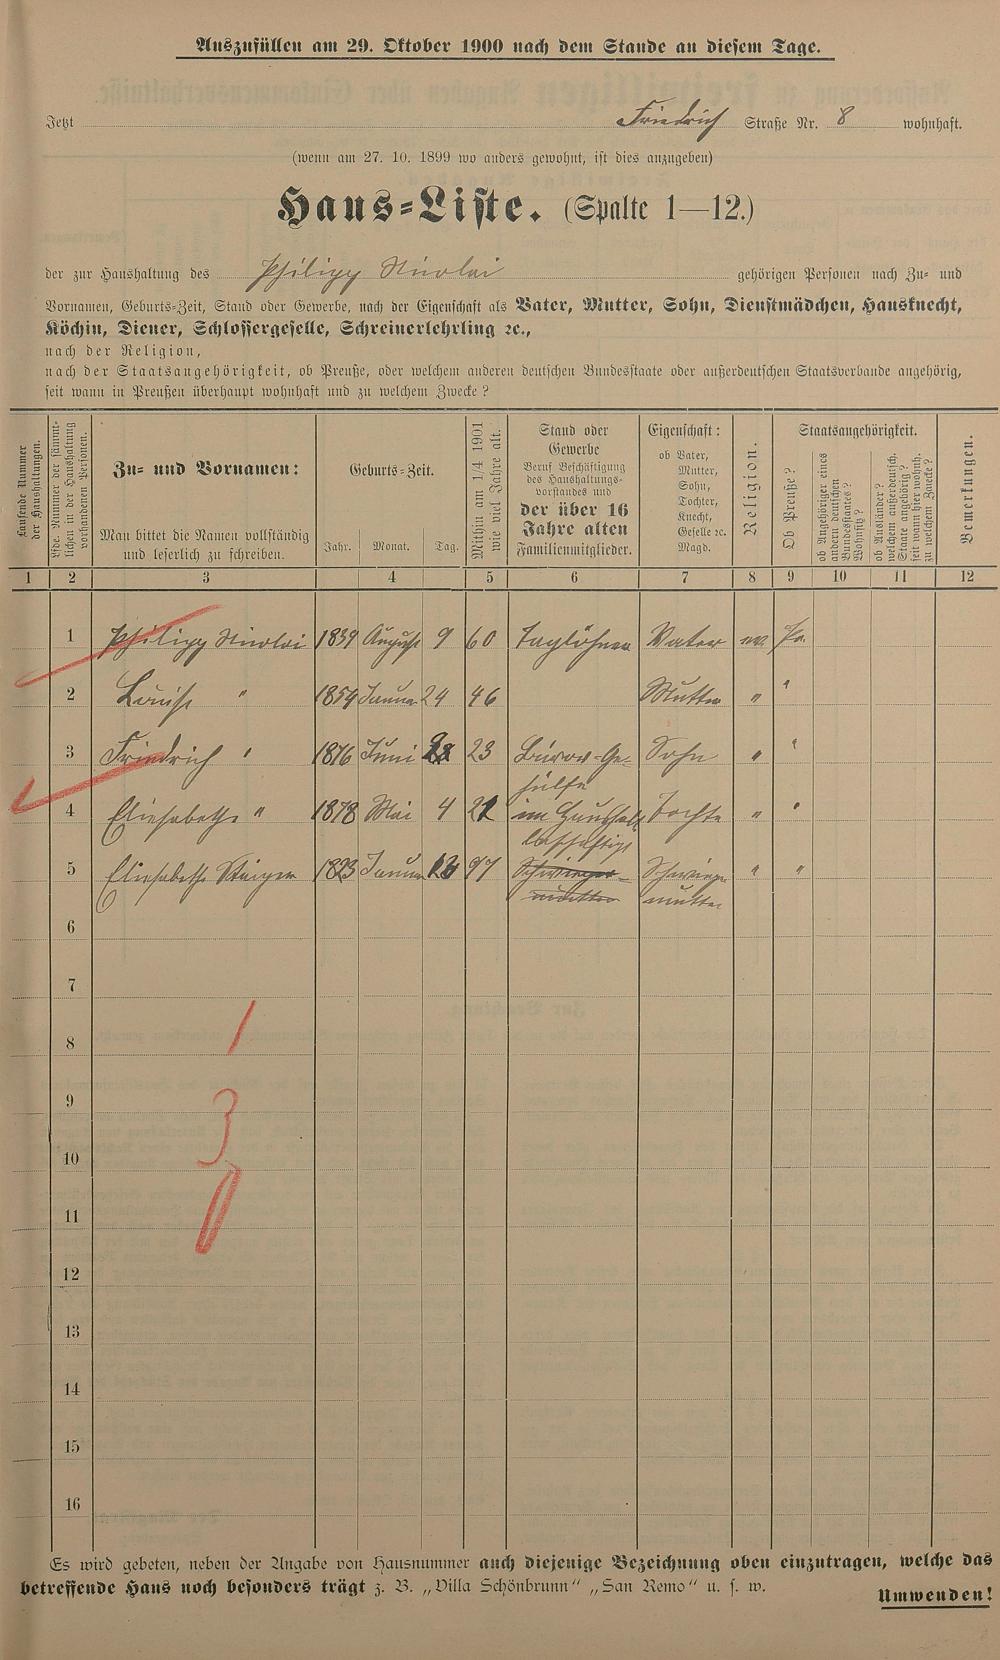 Auszufüllen am 29. Oktober 1900 nach dem Stande an diesem Tage.
Jetzt Friedrich Straße Nr. 8 wohnhaft.
(wenn am 27. 10. 1899 wo anders gewohnt, ist dies anzugeben)
Haus-Liste. (Spalte 1—12.)
der zur Haushaltung des Philipp Nicolai gehörigen Personen nach Zu- und
Vornamen, Geburts-Zeit, Stand oder Gewerbe, nach der Eigenschaft als Vater, Mutter, Sohn, Dienstmädchen, Hausknecht,
Köchin, Diener, Schlossergeselle, Schreinerlehrling ꝛc.,
nach der Religion,
nach der Staatsangehörigkeit, ob Preuße, oder welchem anderen deutschen Bundesstaate oder außerdeutschen Staatsverbande angehörig,
seit wann in Preußen überhaupt wohnhaft und zu welchem Zwecke?
Laufende Nummer der Haushaltungen.
Lfde. Nummer der sämmtlichen in der Haushaltung vorhandenen Personen.
Zu- und Vornamen:
Man bittet die Namen vollständig
und leserlich zu schreiben.
Geburts-Zeit.
Jahr. Monat. Tag.
Mithin am 1/4 1901 wie viel Jahre alt.
Stand oder
Gewerbe
Beruf Beschäftigung
des Haushaltungs-
vorstandes und
der über 16
Jahre alten
Familienmitglieder.
Eigenschaft:
ob Vater,
Mutter,
Sohn,
Tochter,
Knecht,
Geselle ꝛc.
Magd.
Religion.
Staatsangehörigkeit.
Ob Preuße?
ob Angehöriger eines andern deutschen Bundesstaates? Wohnsitz?
ob Ausländer? welchem außerdeutsch. Staate angehörig? seit wann hier wohnh. zu welchem Zwecke?
Bemerkungen.
1 2 3 4 5 6 7 8 9 10 11 12
1 Philipp Nicolai 1839 August 9 60 Taglöhner Vater ev. Pr.
2 Louise " 1854 Januar 24 46 Mutter " "
3 Friedrich " 1876 Juni 23 Bürow-Ge- Sohn " "
hülfe
4 Eliesabethe " 1878 Mai 4 im Haushalt Tochter " "
beschäftigt
5 Eliesabethe 1823 Januar Schwieger- Schwieger " "
mutter mutter
6
7
8
9
10
11
12
13
14
15
16
1
3
Es wird gebeten, neben der Angabe von Hausnummer auch diejenige Bezeichnung oben einzutragen, welche das
betreffende Haus noch besonders trägt z. B. „Villa Schönbrunn“ „San Remo“ u. s. w.
Umwenden!